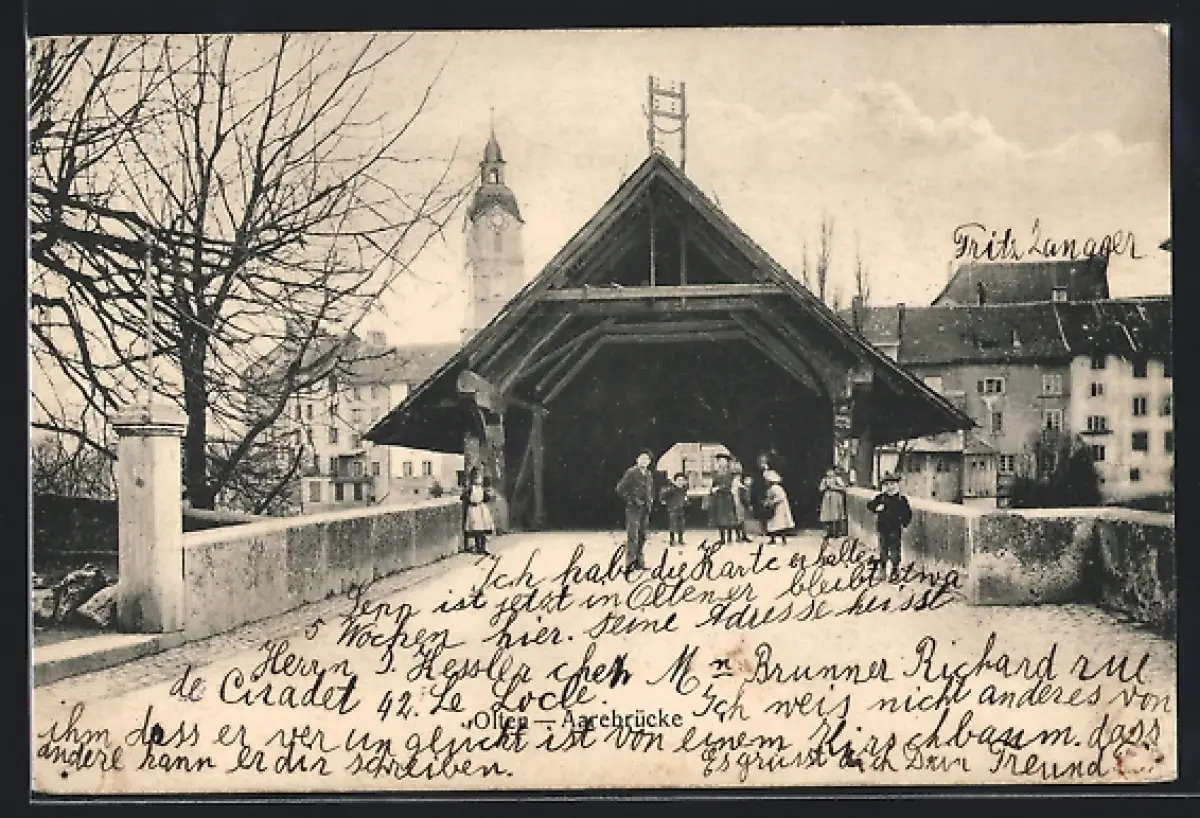 Fritz Zangger
Ich habe die Karte erhalten
Jenn ist jetzt in Olten er bleibt etwa
5 Wochen hier. seine Adresse heisst
Herrn J. Hessler chez Mn Brunner Richard rue
de Ciradet 42. Le Locle. Ich weis nicht anderes von
Olten — Aarebrücke
ihm dass er ver un glückt ist von einem Kirschbaum. dass
andere kann er dir schreiben. Es grüsst dich Dein Freund